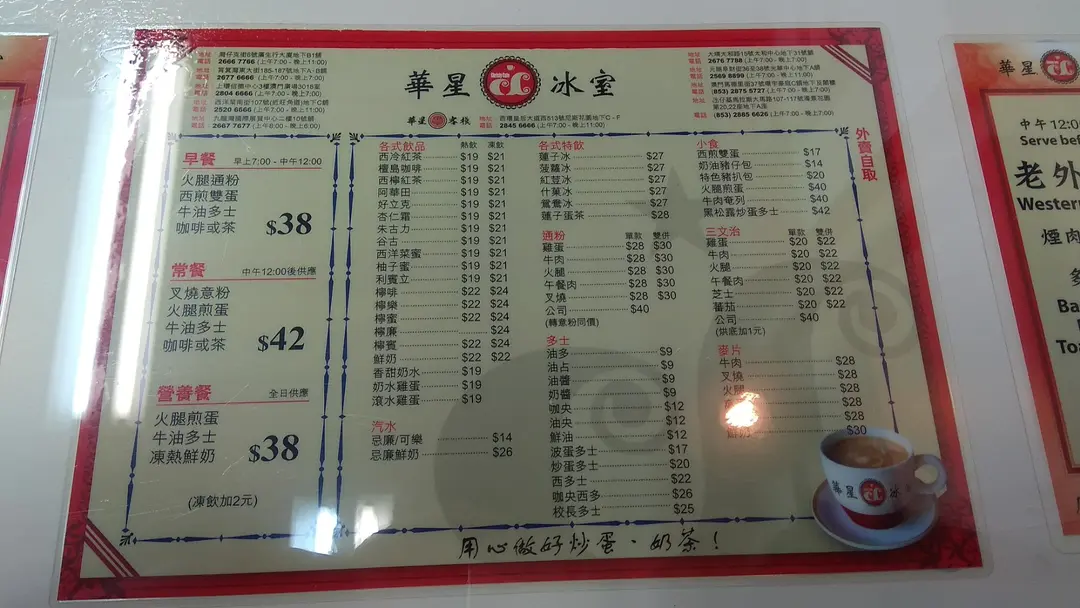 華星
冰室
華星
客棧
地址 灣仔克街6號廣生行大廈地下B1舖
電話 2666 7766 (上午7:00 - 晚上11:00)
電話 2677 6666 (上午7:00 - 晚上11:00)
電話 2804 6666 (上午7:00 - 晚上11:00)
地址 西洋菜南街107號(近旺角道)地下C舖
電話 2520 6666 (上午7:00 - 晚上11:00)
電話 2667 7677 (上午8:00 - 晚上6:00)
電話 2845 6666
電話 2676 7788 (上午7:00 - 晚上11:00)
電話 2569 8899 (上午7:00 - 晚上11:00)
電話 (853) 2875 5727
電話 (853) 2885 6626
外賣自取
早餐 早上7:00 - 中午12:00
火腿通粉
西煎雙蛋
牛油多士
咖啡或茶 $38
常餐 中午12:00後供應
叉燒意粉
火腿煎蛋
牛油多士
咖啡或茶 $42
營養餐 全日供應
火腿煎蛋
牛油多士
凍熱鮮奶 $38
(凍飲加2元)
各式飲品 熱飲 凍飲
西冷紅茶 $19 $21
檀島咖啡 $19 $21
西檸紅茶 $19 $21
阿華田 $19 $21
好立克 $19 $21
杏仁霜 $19 $21
朱古力 $19 $21
谷古 $19 $21
西洋菜蜜 $19 $21
柚子蜜 $19 $21
利賓立 $19 $21
檸啡 $22 $24
檸樂 $22 $24
檸蜜 $22 $24
檸廉 $24
檸賓 $22 $24
鮮奶 $22 $22
香甜奶水 $19
奶水雞蛋 $19
滾水雞蛋 $19
汽水
忌廉/可樂 $14
忌廉鮮奶 $26
各式特飲
蓮子冰 $27
菠蘿冰 $27
紅荳冰 $27
什菓冰 $27
鴛鴦冰 $27
蓮子蛋茶 $28
通粉 單款 雙併
雞蛋 $28 $30
牛肉 $28 $30
火腿 $28 $30
午餐肉 $28 $30
叉燒 $28 $30
公司 $40
(轉意粉同價)
多士
油多 $9
油占 $9
油醬 $9
奶醬 $9
咖央 $12
油央 $12
鮮油 $12
波蛋多士 $17
炒蛋多士 $20
西多士 $22
咖央西多 $26
校長多士 $25
小食
西煎雙蛋 $17
奶油豬仔包 $14
特色豬扒包 $20
火腿煎蛋 $40
牛肉奄列 $40
黑松露炒蛋多士 $42
三文治 單款 雙併
雞蛋 $20 $22
牛肉 $20 $22
火腿 $20 $22
午餐肉 $20 $22
芝士 $20 $22
蕃茄 $20 $22
公司 $40
(烘底加1元)
麥片
牛肉 $28
叉燒 $28
火腿 $28
$28
$30
華星
冰
用心做好炒蛋、奶茶！
華星
中午12:0
Serve be
老外
Western
煙肉
Ba
To